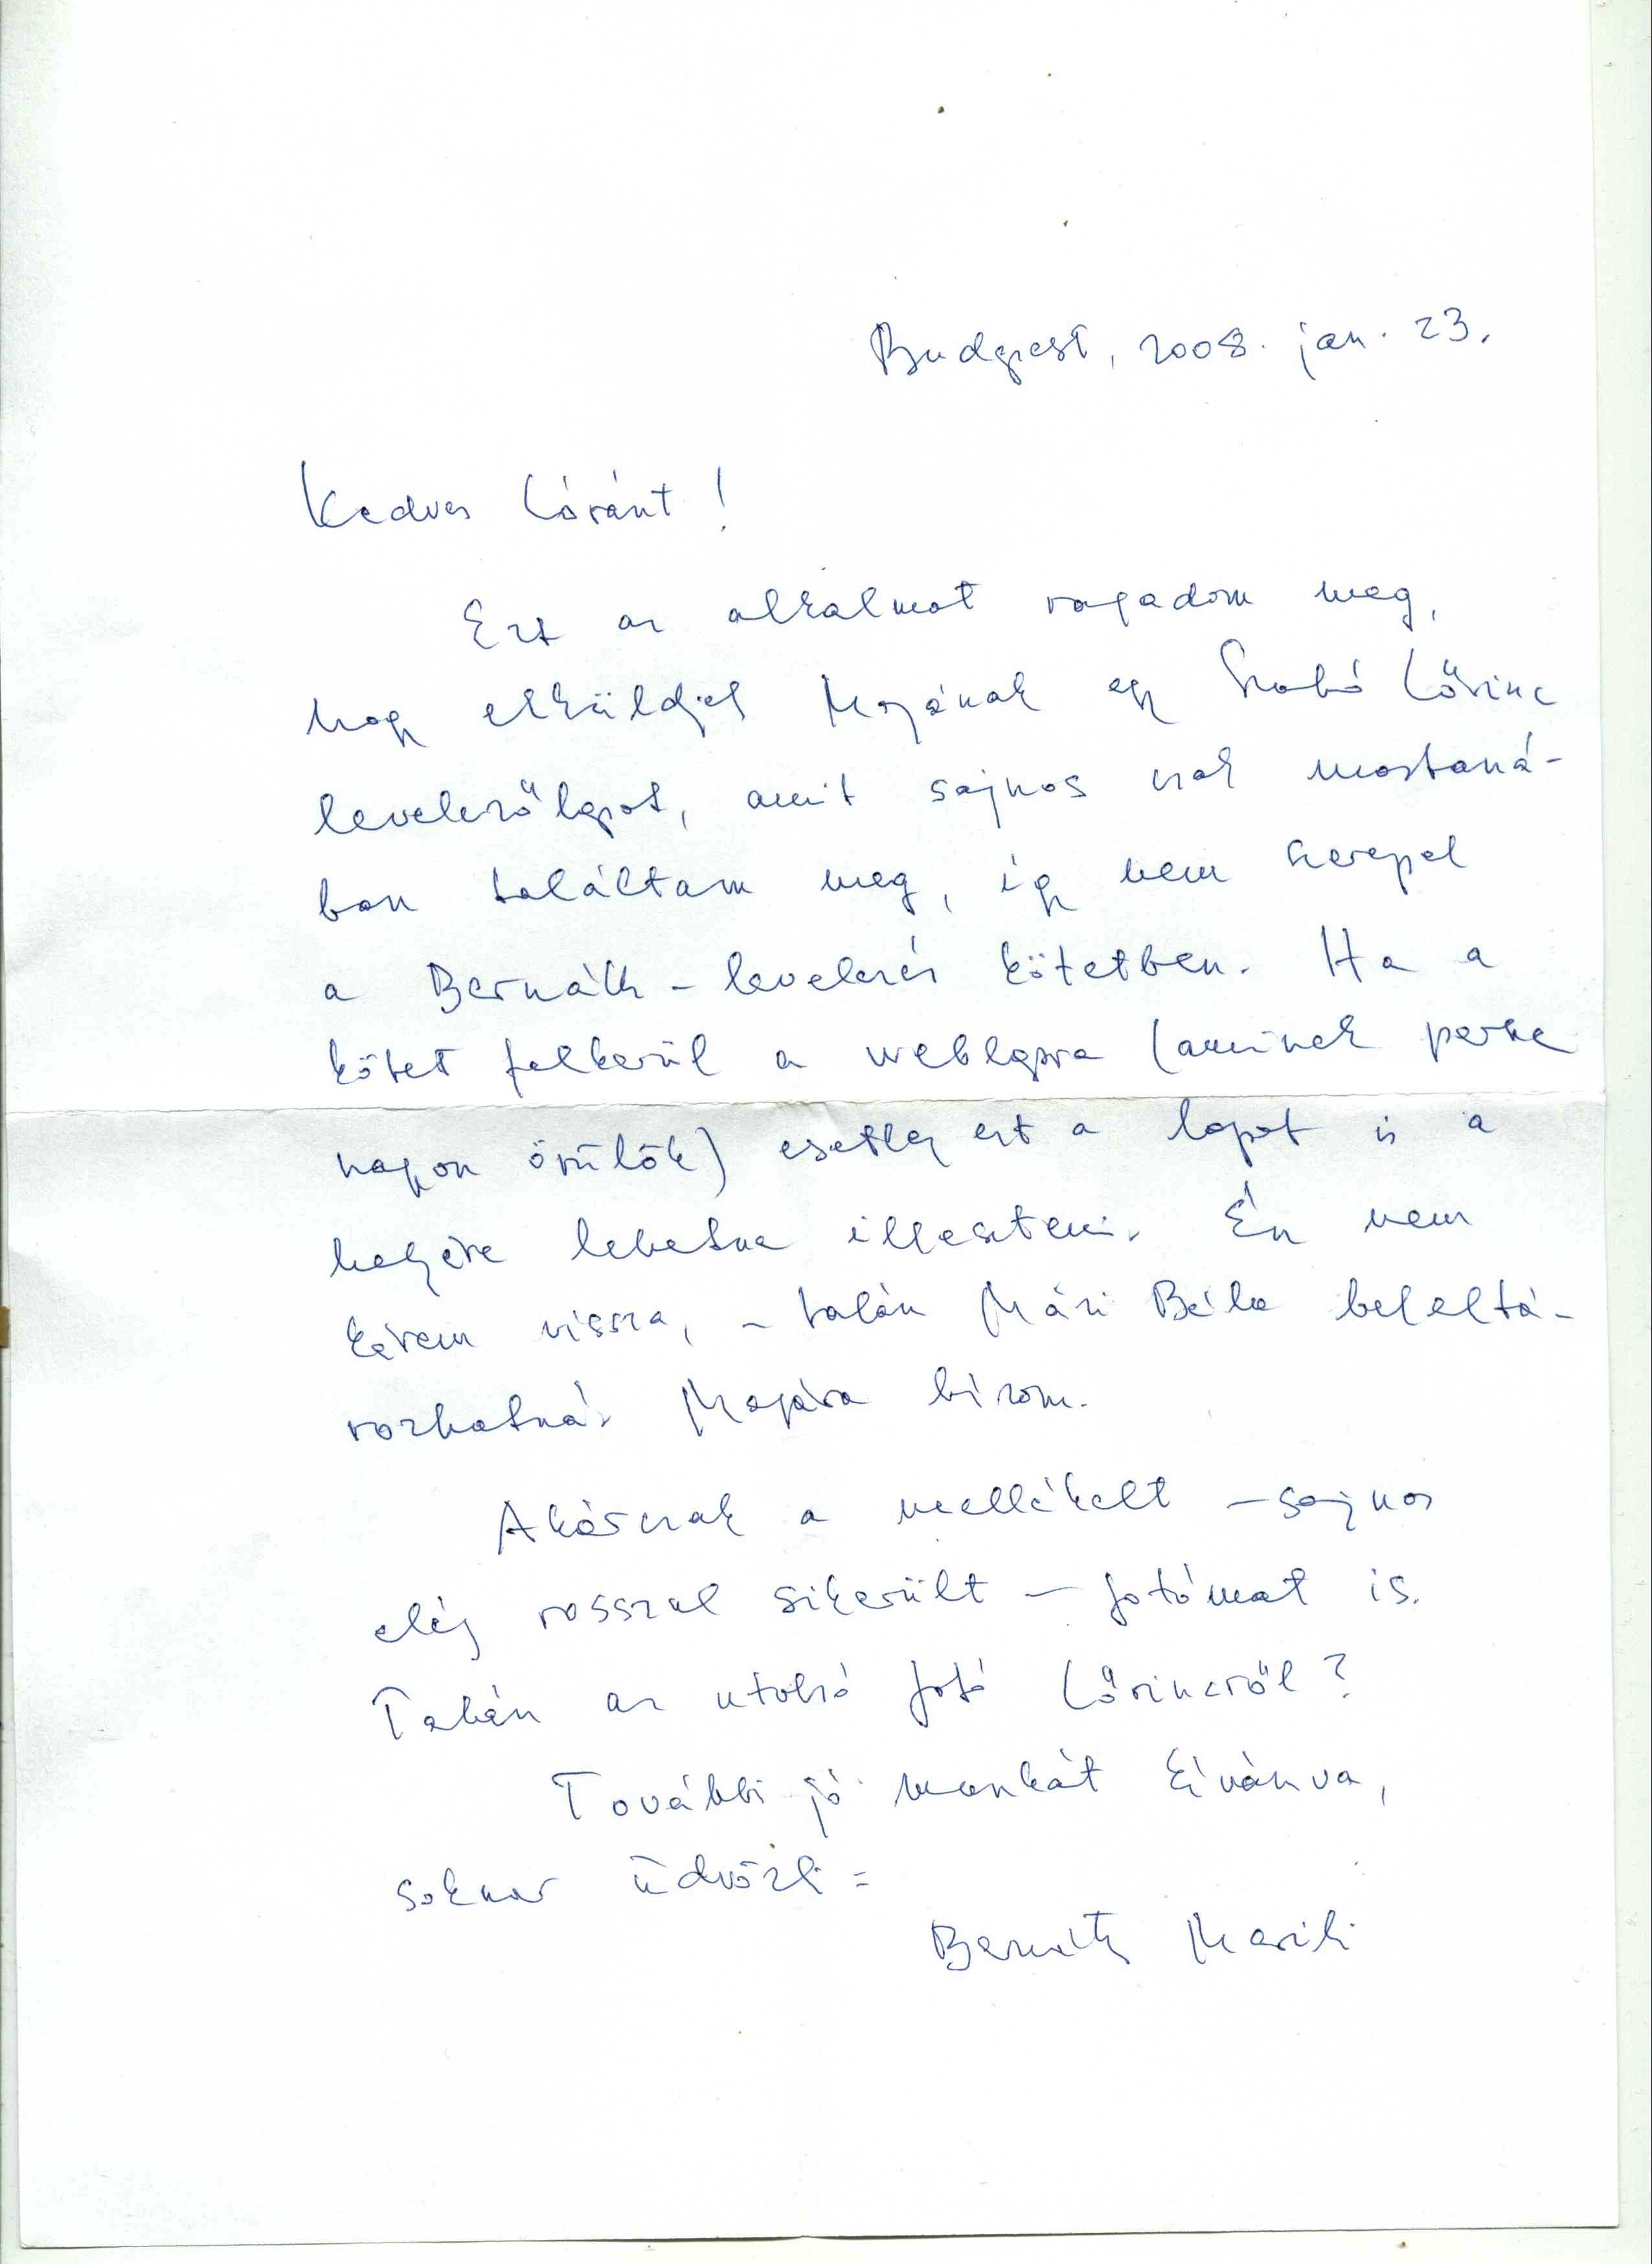 Budapest, 2008. jan. 23.
Kedves Lóránt!
Ezt az alkalmat ragadom meg,
hogy elküldjek Magának egy Szabó Lőrinc
levelezőlapot, amit sajnos csak mostaná-
ban találtam meg, így nem szerepel
a Bernáth-levelezés kötetben. Ha a
kötet felkerül a weblapra (aminek persze
nagyon örülök) esetleg ezt a lapot is a
helyére lehetne illeszteni. Én nem
kérem vissza, – talán Mázi Béla beleltá-
rozhatná. Magára bízom.
Akárcsak a mellékelt – sajnos
elég rosszul sikerült – fotómat is.
Talán az utolsó fotó Lőrincről?
További jó munkát kívánva,
sokszor üdvözli:
Bernáth Marili